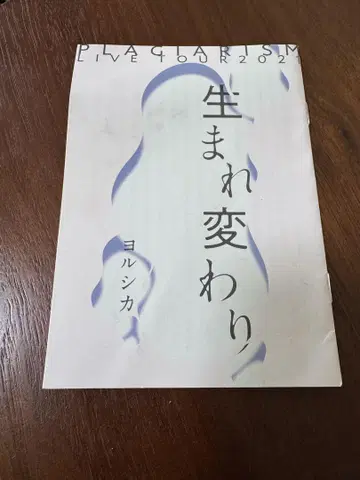 PLAGIARISM
LIVE TOUR 2021
生まれ変わり
ヨルシカ